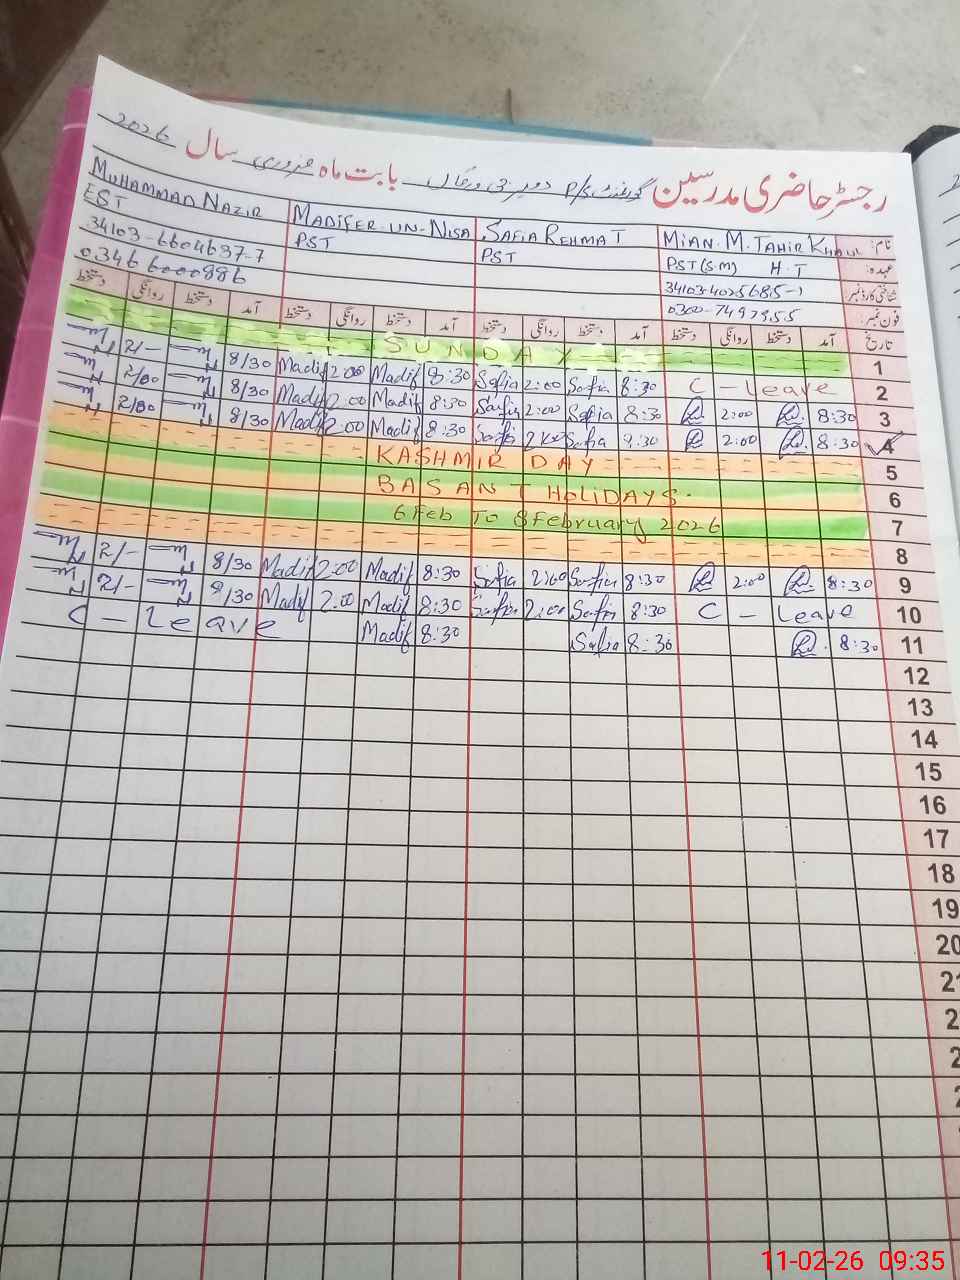 رجسٹر حاضری مدرسین گورنمنٹ P/S بابت ماہ فروری سال 2026
نام: MIAN. M. TAHIR KHALIL SAFIA REHMAT MADIFER-UN-NISA MUHAMMAD NAZIR
عہدہ: PST (S.M) H.T PST PST EST
شناختی کارڈ نمبر 34103-4025685-1 34103-6604637-7
فون نمبر: 0300-7497955 0346 6000886
تاریخ آمد دستخط روانگی دستخط آمد دستخط روانگی دستخط آمد دستخط روانگی دستخط آمد دستخط روانگی دستخط
SUNDAY 1
2/- 8/30 Madif 2:00 Madif 8:30 Safia 2:00 Safia 8:30 C - Leave 2
2/00 8/30 Madif 2:00 Madif 8:30 Safia 2:00 Safia 8:30 2:00 8:30 3
2/00 8/30 Madif 2:00 Madif 8:30 Safia 2:00 Safia 8:30 2:00 8:30 4
KASHMIR DAY 5
BASANT HOLIDAYS. 6
6 Feb To 8 February 2026 7
8
2/- 8/30 Madif 2:00 Madif 8:30 Safia 2:00 Safia 8:30 2:00 8:30 9
2/- 8/30 Madif 2:00 Madif 8:30 Safia 2:00 Safia 8:30 C - Leave 10
C - Leave Madif 8:30 Safia 8:30 8:30 11
12
13
14
15
16
17
18
19
20
11-02-26 09:35